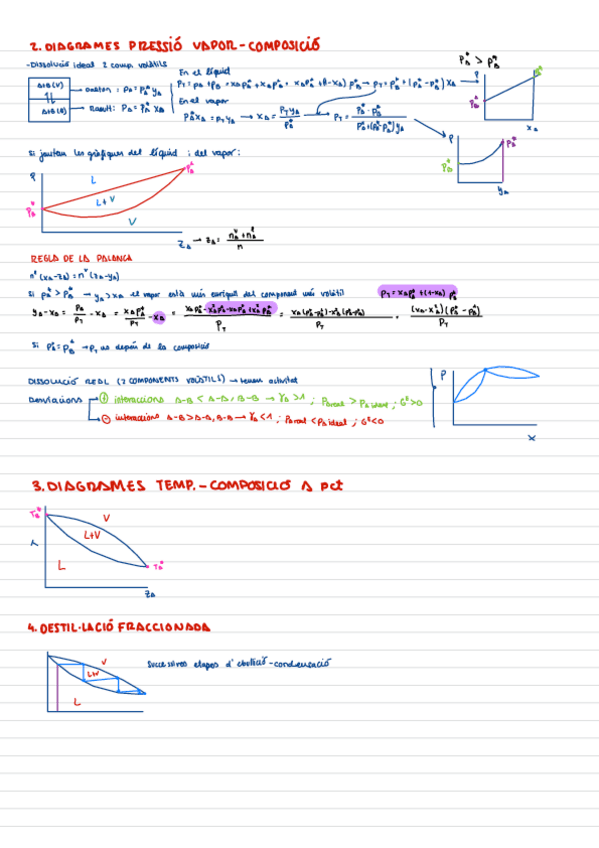 2. DIAGRAMES PRESSIÓ VAPOR - COMPOSICIÓ
- Dissolució ideal 2 comp. volàtils
P*A > P*B
En el líquid
A+B(V)
Dalton: PA = PT yA
PT = PA + PB = xA P*A + xB P*B = xA P*A + (1-xA) P*B → PT = P*B + (P*A - P*B) xA
A+B(l)
Raoult: PA = P*A xA
En el vapor
P*A xA = PT yA → xA = PT yA / P*A
PT = P*A · P*B / P*A + (P*B - P*A) yA
P
P*B
P*A
xA
P
P*B
P*A
yA
Si juntem les gràfiques del líquid i del vapor:
P
P*A
L
L+V
P*B
V
ZA → ZA =
REGLA DE LA PALANCA
nl (xA - ZA) = nv (ZA - yA)
Si P*A > P*B → yA > xA el vapor està més enriquit del component més volàtil
PT = xA P*A + (1-xA) P*B
yA - xA = PA / PT - xA = xA P*A / PT - xA = xA P*A - x²A P*A - xA P*B + x²A P*B / PT = xA (P*A - P*B) - x²A (P*A - P*B) / PT = (xA - x²A)(P*A - P*B) / PT
Si P*A = P*B → PT no depèn de la composició
DISSOLUCIÓ REAL (2 COMPONENTS VOLÀTILS) → tenim activitat
Desviacions
+ interaccions A-B < A-A, B-B → γA > 1 ; PA real > PA ideal ; GE > 0
- interaccions A-B > A-A, B-B → γA < 1 ; PA real < PA ideal ; GE < 0
P
x
3. DIAGRAMES TEMP. - COMPOSICIÓ A P ct
T*B
V
L+V
L
T*A
ZA
4. DESTIL·LACIÓ FRACCIONADA
V
L+V
L
Successives etapes d'ebullició - condensació